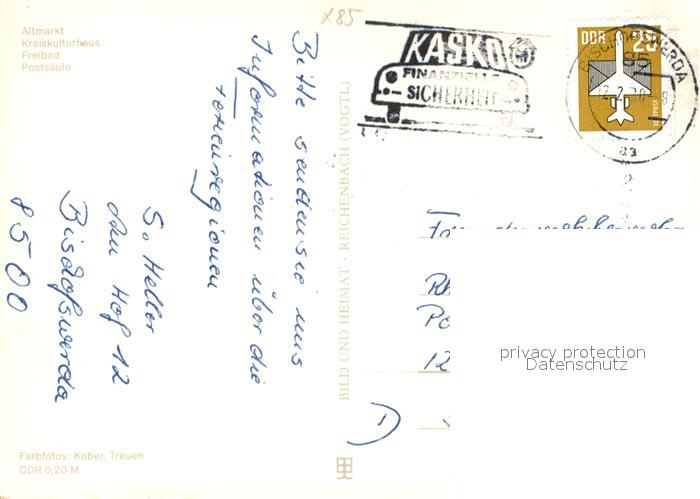 Altmarkt
Kreiskulturhaus
Freibad
Postsäule
x85
KASKO
FINANZIELLE
SICHERHEIT
DDR 25
LUFTPOST
BISCHOFSWERDA
8500
aa
Bitte senden sie uns
Informationen über die
Ferienregionen
S. Heller
Am Hof 12
Bischofswerda
8500
BILD UND HEIMAT · REICHENBACH (VOGTL)
12
privacy protection
Datenschutz
Farbfotos: Kober, Treuen
DDR 0,20 M